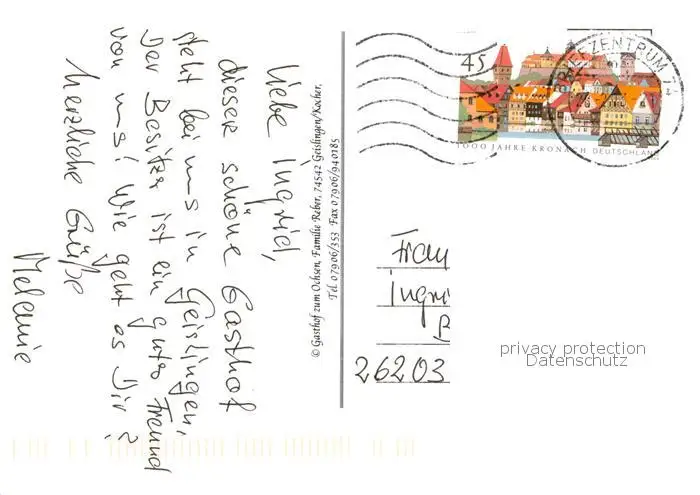 Liebe Ingrid,
dieser schöne Gasthof
steht bei uns in Geislingen,
Der Besitzer ist ein guter Freund
von uns! Wie geht es Dir?
Herzliche Grüße
Melanie
© Gasthof zum Ochsen, Familie Reber, 74542 Geislingen/Kocher,
Tel 07906/353 Fax 07906/940185
45
BRIEFZENTRUM 74
1000 JAHRE KRONACH DEUTSCHLAND
Frau
Ingri
B
26203
privacy protection
Datenschutz